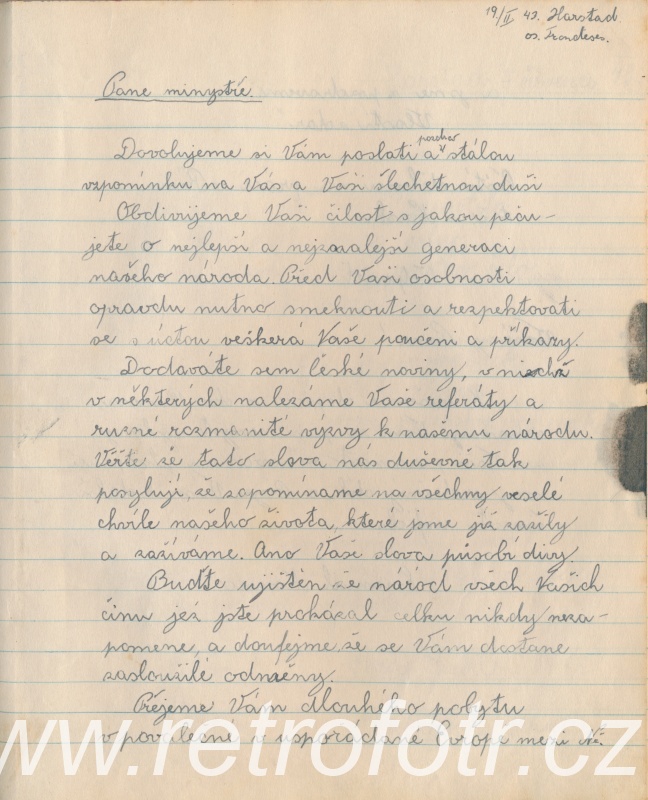 19/II 43. Harstad
os. Trondeses.
Pane ministře.
Dovolujeme si Vám poslati pozdrav a stálou
vzpomínku na Vás a Vaši šlechetnou duši
Obdivijeme Vaši čilost s jakou peču-
jete o nejlepší a nejzmalejší generaci
našeho národa. Před Vaší osobnosti
opravdu nutno smeknouti a rezpektovati
se s úctou veškerá Vaše poučeni a příkazy.
Dodaváte sem české noviny, v nichž
v některých nalezáme Vaše referáty a
ruzné rozmanité výzvy k našemu národu.
Věřte že tato slova nás duševně tak
posylují, že zapomínáme na všechny veselé
chvíle našeho života, které jsme již zažily
a zažíváme. Ano Vaše slova působí divy.
Buďte ujištěn že národ všech Vašich
činu jež jste prokázal celku nikdy neza-
pomene, a doufejme že se Vám dostane
zasloužilé odměny.
Přejeme Vám dlouhého pobytu
v povalečné v usporádané Evropě mezi
www.retrofotr.cz